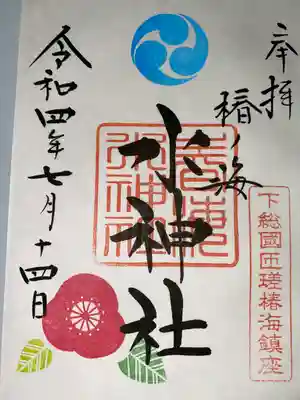 奉拝
椿ノ海
水神社
下総國匝瑳椿海鎮座
令和四年七月十四日